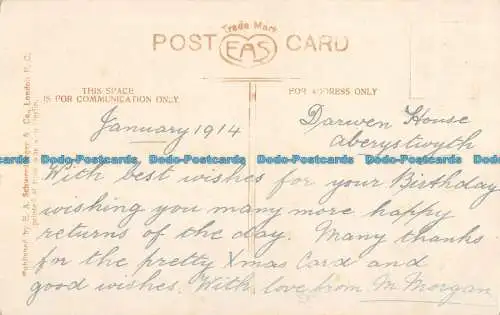 Trade Mark
POST CARD
EAS
THIS SPACE
IS FOR COMMUNICATION ONLY.
FOR ADDRESS ONLY
January 1914
Darwen House
Aberystwyth
With best wishes for your Birthday
wishing you many more happy
returns of the day. Many thanks
for the pretty Xmas Card and
good wishes. With love from M. Morgan
Dodo-Postcards Dodo-Postcards Dodo-Postcards Dodo-Postcards Dodo-Postcards
Co., London E.C.